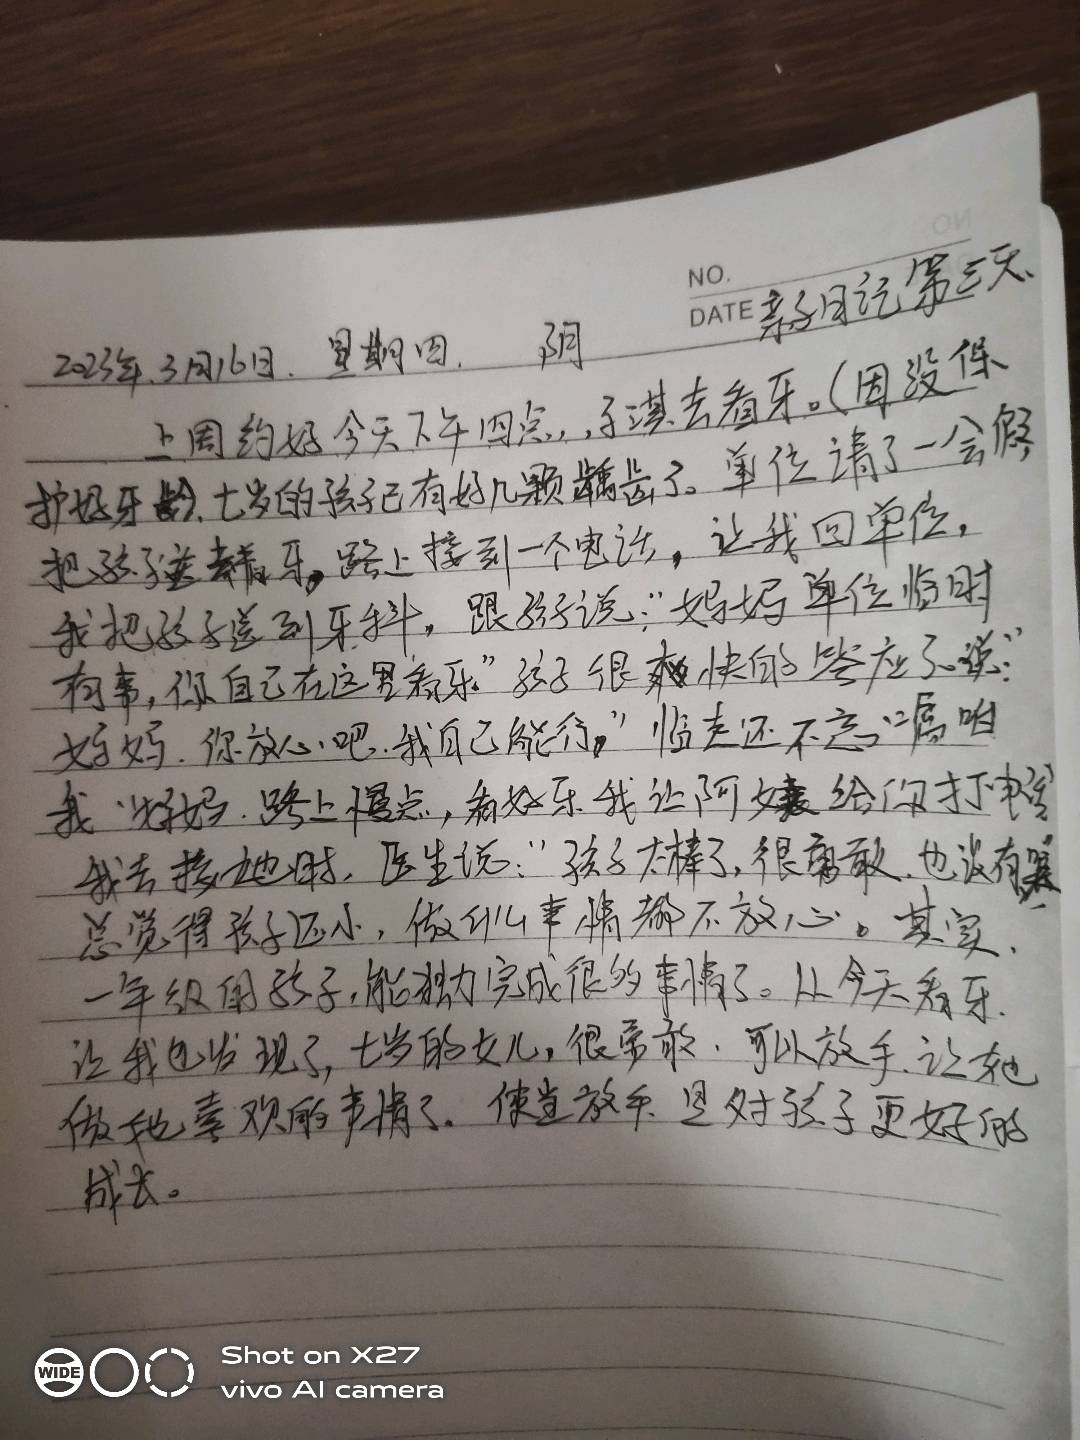 NO.
DATE 亲子日记第三天
2023年.3月16日. 星期四. 阴
上周约好今天下午四点,子淇去看牙。(因没保
护好牙齿.七岁的孩子已有好几颗龋齿了。单位请了一会假
把孩子送去看牙,路上接到一个电话,让我回单位,
我把孩子送到牙科,跟孩子说:"妈妈单位临时
有事,你自己在这里看牙"孩子很爽快的答应了说:"
好妈.你放心吧.我自己能行,"临走还不忘叮嘱咱
我"妈妈.路上慢点,看好牙我让阿姨给你打电话
我去接她时,医生说:"孩子太棒了,很勇敢.也没有哭
总觉得孩子还小,做什么事情都不放心。其实,
一年级的孩子,能独力完成很多事情了。从今天看牙.
让我也发现了,七岁的女儿,很勇敢.可以放手.让她
做她喜欢的事情了.使当放手 是对孩子更好的
成长。
WIDE
Shot on X27
vivo AI camera